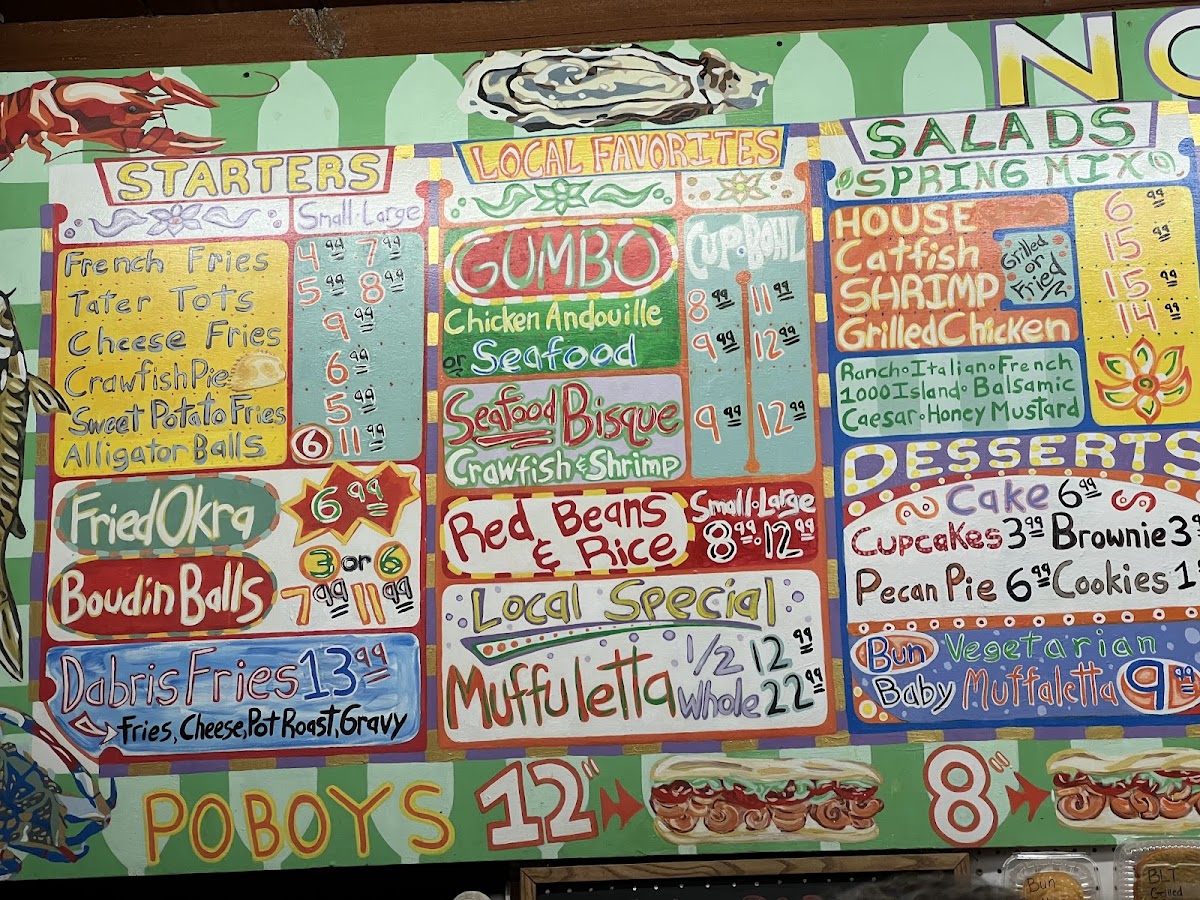 STARTERS
Small·Large
French Fries 4.99 7.99
Tater Tots 5.99 8.99
Cheese Fries 9.99
Crawfish Pie 6.99
Sweet Potato Fries 5.99
Alligator Balls 6 11.99
Fried Okra 6.99
3 or 6
Boudin Balls 7.99 11.99
Dabris Fries 13.99
Fries, Cheese, Pot Roast, Gravy
LOCAL FAVORITES
GUMBO
CUP·BOHL
Chicken Andouille 8.99 11.99
or Seafood 9.99 12.99
Seafood Bisque 9.99 12.99
Crawfish & Shrimp
Red Beans & Rice
Small·Large
8.99·12.99
Local Special
Muffuletta
1/2 12.99
Whole 22.99
NO
SALADS
SPRING MIX
HOUSE 6.99
Catfish 15.99
SHRIMP 15.99
Grilled or Fried
Grilled Chicken 14.99
Ranch·Italian·French
1000 Island·Balsamic
Caesar·Honey Mustard
DESSERTS
Cake 6.99
Cupcakes 3.99 Brownie 3
Pecan Pie 6.99 Cookies 1
Bun Vegetarian
Baby Muffaletta 9.99
POBOYS 12" 8"
Bun
BLT
Grilled